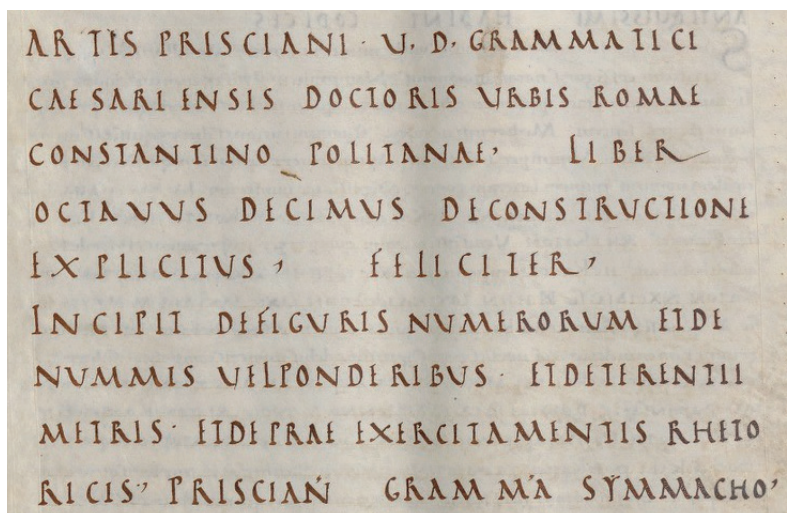 ARTIS PRISCIANI · U. D. GRAMMATICI
CAESARIENSIS DOCTORIS URBIS ROMAE
CONSTANTINO POLITANAE, LIBER
OCTAVVS DECIMUS DECONSTRUCTIONE
EXPLICITUS, FELICITER,
INCIPIT DEFIGURIS NUMERORUM ETDE
NUMMIS VELPONDERIBUS · ETDETERENTII
METRIS · ETDEPRAE EXERCITAMENTIS RHETO
RICIS, PRISCIAN GRAMMA SYMMACHO,